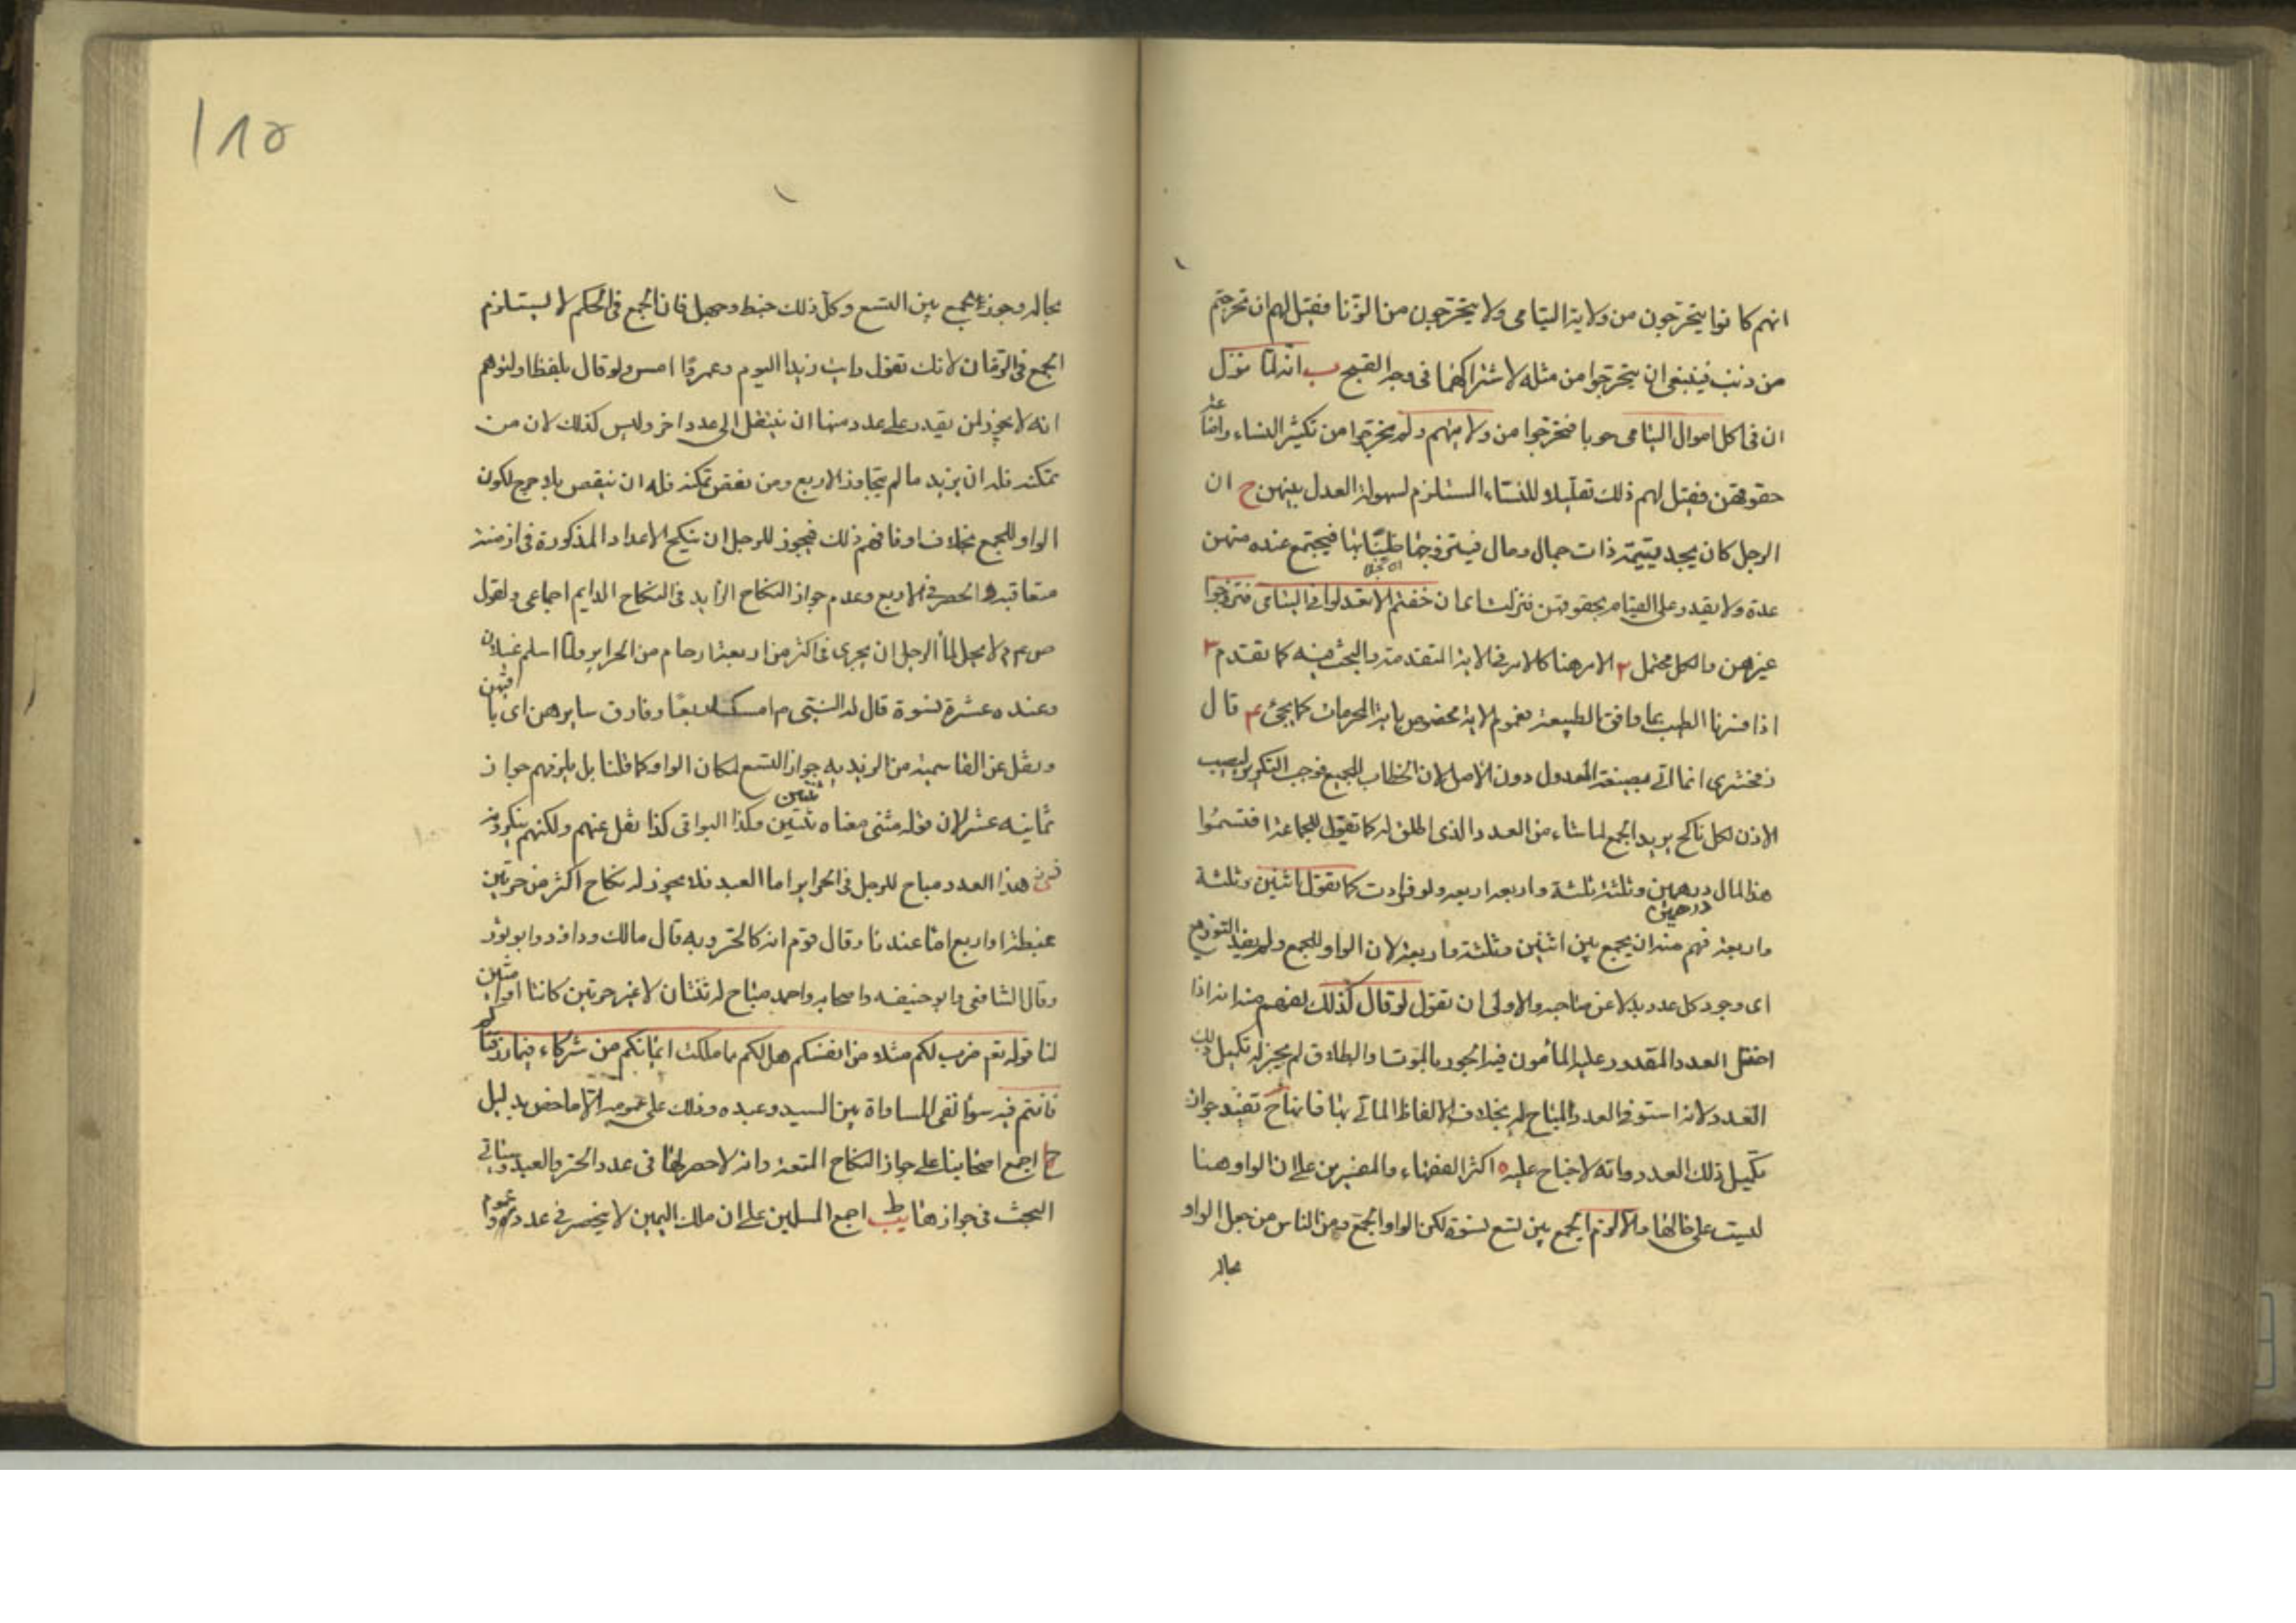 انهم كانوا يتحرجون من ولاية اليتامى ولا يتحرجون من الزنا فقيل لهم ان تحرجتم
من ذنب فينبغي ان يتحرجوا من مثله لاشتراكهما فى وجه القبح ب انه لما نزل
ان فى اكل اموال اليتامى حوبا فتحرجوا من ولايتهم ولم يتحرجوا من تكثير النساء واضاعة
حقوقهن فقيل لهم ذلك تقليلا للنساء المستلزم لسهولة العدل بينهن ج ان
الرجل كان يجد يتيمة ذات جمال ومال فيتزوجها فيجتمع عنده منهن
عدة ولا يقدر على القيام بحقوقهن فنزلت اى ان خفتم الا تعدلوا فى اليتامى فتزوجوا
غيرهن والكل محتمل ٢ الامر هنا كالامر فى الاية المتقدمة والبحث فيه كما تقدم ٣
اذا فسرنا الطيب بما وافق الطبيعة فعموم الاية مخصوص باية المحرمات كما يجئ ٤ قال
زمخشرى انما اتى بصيغة المعدول دون الاصل لان الخطاب للجميع فوجب التكرير ليصيب
الاذن لكل ناكح يريد الجمع لما شاء من العدد الذى اطلق له كما تقول للجماعة اقتسموا
هذا المال درهمين درهمين وثلثة ثلثة واربعة اربعة ولو افردت كما تقول اثنين وثلثة
واربعة فهم منه ان يجمع بين اثنين وثلثة واربعة لان الواو للجمع ولم يفد التوزيع
اى وجود كل عدد بدلا عن صاحبه والاولى ان تقول لو قال كذلك لفهم منه انه اذا
اختل العدد المقدور عليه المأمون فيه الجور بالموت او الطلاق لم يجز له تكميل ذلك
العدد لانه استوفى العدد المباح له بخلاف الالفاظ المأتى بها فانها ح تفيد جواز
تكميل ذلك العدد وانه لا جناح عليه ٥ اكثر الفقهاء والمفسرين على ان الواو هنا
ليست على حالها والا لزم الجمع بين تسع نسوة لكن الواو للجمع ومن الناس من جعل الواو
بحاله
١٨٥
بحاله وجوز الجمع بين التسع وكل ذلك خبط وجهل فان الجمع فى الحكم لا يستلزم
الجمع فى الزمان لانك تقول رايت زيدا اليوم وعمروا امس ولو قال بلفظ او لتوهم
انه لا يجوز لمن يقدر على عدد منها ان ينتقل الى عدد اخر وليس كذلك لان من
تمكنه فله ان يزيد ما لم يتجاوز الاربع ومن نقص تمكنه فله ان ينقص بلا حرج لكون
الواو للجمع بخلاف او فافهم ذلك فيجوز للرجل ان ينكح الاعداد المذكورة فى ازمنة
متعاقبة الحصر فى الاربع وعدم جواز النكاح الزايد فى النكاح الدايم اجماعى ولقول
ص ع م لا يحل لماء الرجل ان يجرى فى اكثر من اربعة ارحام من الحراير ولما اسلم غيلان
وعنده عشرة نسوة قال له النبى م امسك اربعا وفارق سايرهن اى باقيهن
ونقل عن القاسمية من الزيدية جواز التسع لمكان الواو كما قلنا بل يلزمهم جواز
ثمانيه عشر لان قوله مثنى معناه ثنتين ثنتين وكذا البواقى كذا نقل عنهم ولكنهم ينكرونه
هذا العدد مباح للرجل فى الحراير اما العبد فلا يجوز له نكاح اكثر من حرتين
او اربع اماء عندنا وقال قوم انه كالحر وبه قال مالك وداود وابو ثور
وقال الشافعى وابو حنيفه واصحابه واحمد مباح له ثنتان لا غير حرتين كانتا او امتين
لنا قوله تع ضرب لكم مثلا من انفسكم هل لكم مما ملكت ايمانكم من شركاء فيما رزقناكم
فانتم فيه سواء نفى المساواة بين السيد وعبده وذلك على عمومه الا ما خص بدليل
ح اجمع اصحابنا على جواز النكاح المتعة وانه لا حصر لها فى عدد الحر والعبد وسياتى
البحث فى جوازها ط اجمع المسلمين على ان ملك اليمين لا ينحصر فى عدد